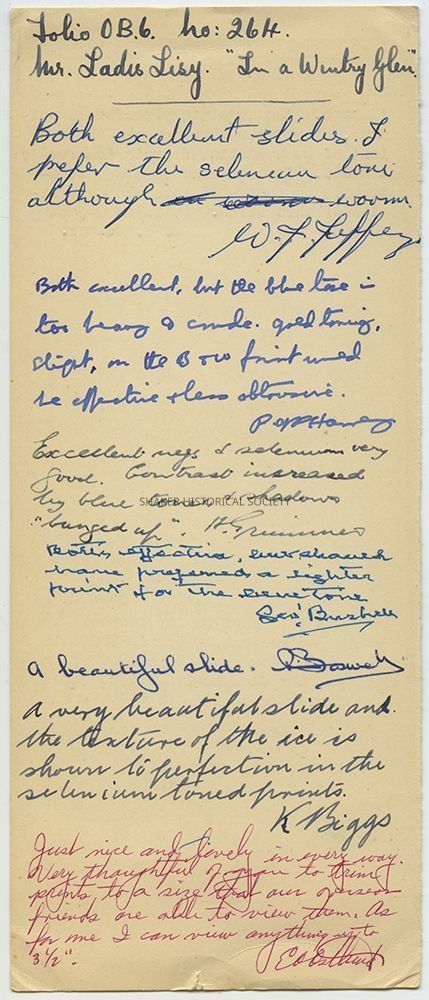 Folio OB.6. No: 264.
Mr. Ladis Lisy. "In a Wintry Glen".
Both excellent slides. I
prefer the selenium tone
although warm.
W. F. Jeffrey
Both excellent, but the blue tone is
too heavy & crude. gold toning,
slight, on the B & W print would
be effective & less obtrusive.
Excellent negs & selenium very
good. Contrast increased
by blue tone & shadows
SHAKER HISTORICAL SOCIETY
"bunged up". H. Grimmer
Both effective, but should
have preferred a lighter
print for the blue tone
Geo. Bushell
A beautiful slide. Boswell
A very beautiful slide and
the texture of the ice is
shown to perfection in the
selenium toned prints.
K Biggs
Just nice and lovely in every way.
Very thoughtful of you to trim
prints to a size that our overseas
friends are able to view them. As
for me I can view anything up to
3½".